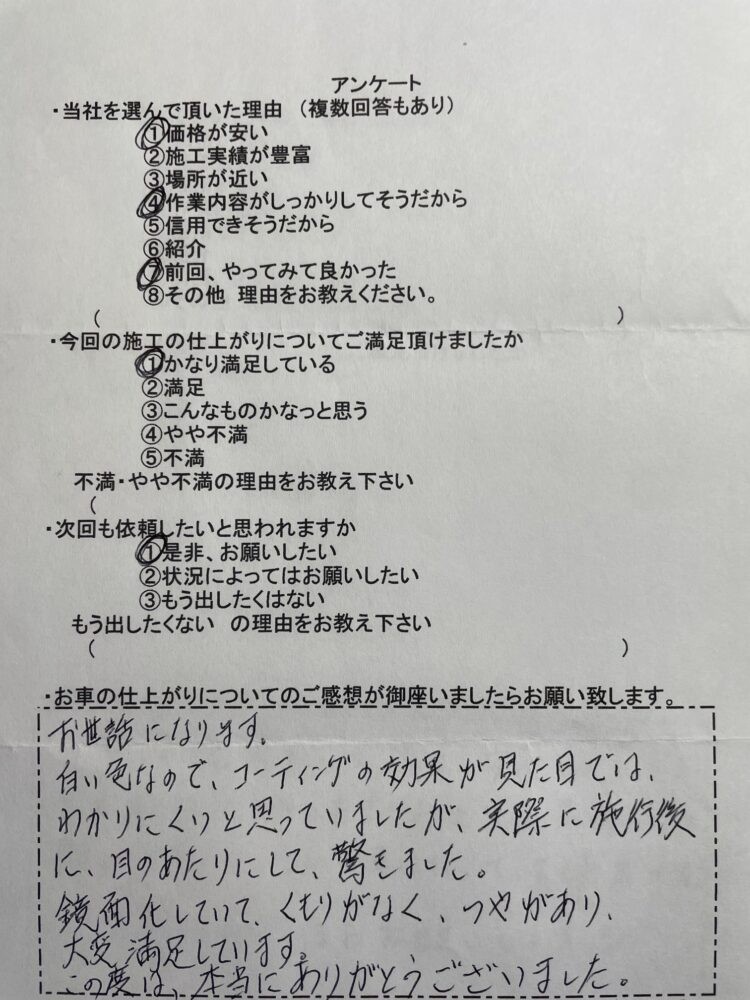 アンケート
・当社を選んで頂いた理由 （複数回答もあり）
①価格が安い
②施工実績が豊富
③場所が近い
④作業内容がしっかりしてそうだから
⑤信用できそうだから
⑥紹介
⑦前回、やってみて良かった
⑧その他 理由をお教えください。
（ ）
・今回の施工の仕上がりについてご満足頂けましたか
①かなり満足している
②満足
③こんなものかなっと思う
④やや不満
⑤不満
不満・やや不満の理由をお教え下さい
（
・次回も依頼したいと思われますか
①是非、お願いしたい
②状況によってはお願いしたい
③もう出したくはない
もう出したくない の理由をお教え下さい
（ ）
・お車の仕上がりについてのご感想が御座いましたらお願い致します。
お世話になります。
白い色なので、コーティングの効果が見た目では、
わかりにくいと思っていましたが、実際に施行後
に、目のあたりにして、驚きました。
鏡面化していて、くもりがなく、つやがあり、
大変満足しています。
この度は、本当にありがとうございました。